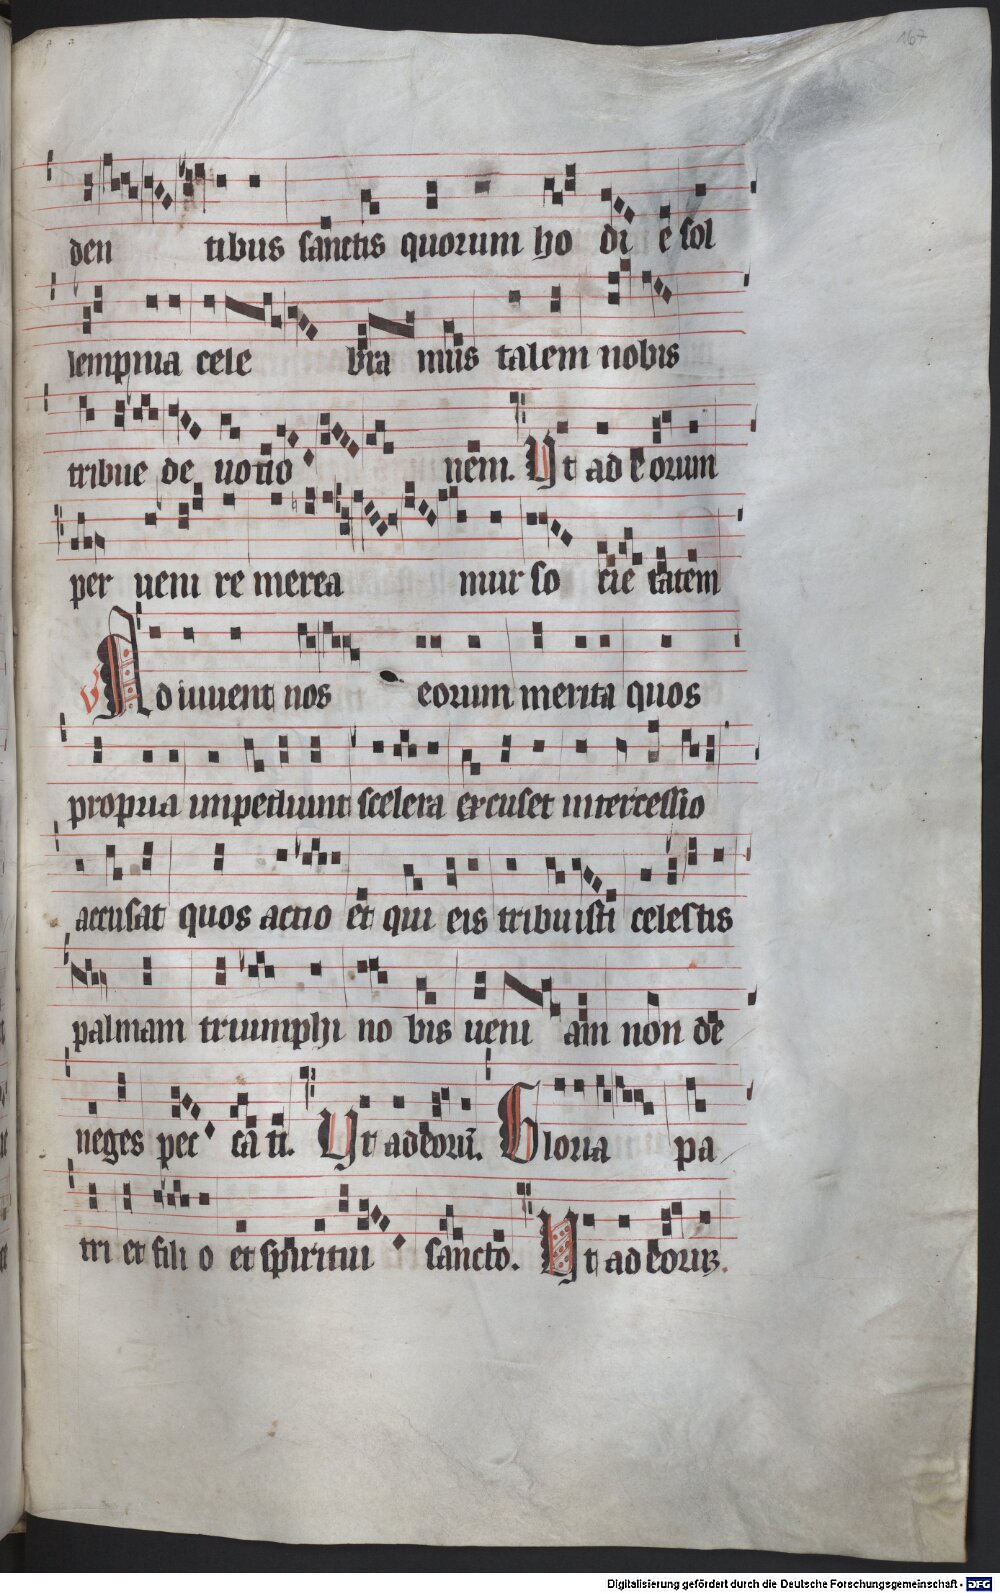 167
den tibus sanctis quorum ho di e sol
lempnia cele bra mus talem nobis
tribue de uotio nem. Ut ad eorum
per ueni re merea mur so cie tatem
V Adiuuent nos eorum merita quos
propria impediunt scelera excuset intercessio
accusat quos actio et qui eis tribuisti celestis
palmam triumphi no bis ueni am non de
neges pec ca ti. Ut ad eorū. Gloria pa
tri et fili o et spiritui sancto. Ut ad eorum.
Digitalisierung gefördert durch die Deutsche Forschungsgemeinschaft - DFG